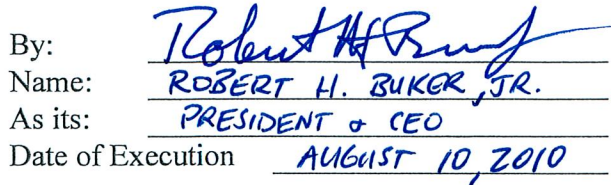 By: Robert H Buker Jr
Name: ROBERT H. BUKER, JR.
As its: PRESIDENT & CEO
Date of Execution AUGUST 10, 2010